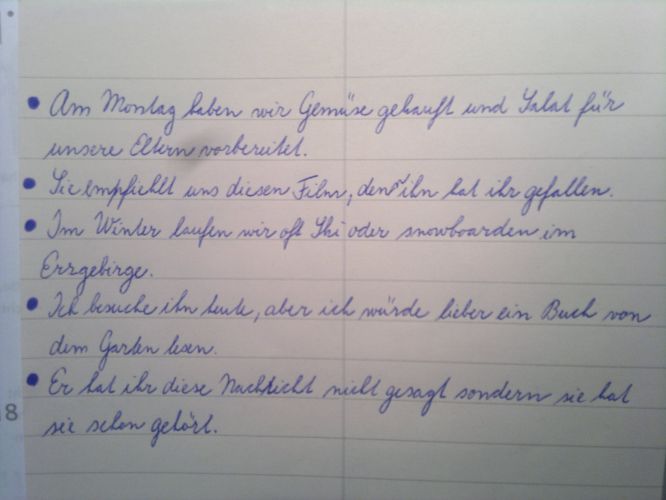 Am Montag haben wir Gemüse gekauft und Salat für
unsere Eltern vorbereitet.
Sie empfiehlt uns diesen Film, denn ihn hat ihr gefallen.
Im Winter laufen wir oft Ski oder snowboarden im
Errgebirge.
Ich besuche ihn heute, aber ich würde lieber ein Buch von
dem Garten lesen.
Er hat ihr diese Nachricht nicht gesagt sondern sie hat
sie schon gehört.
8